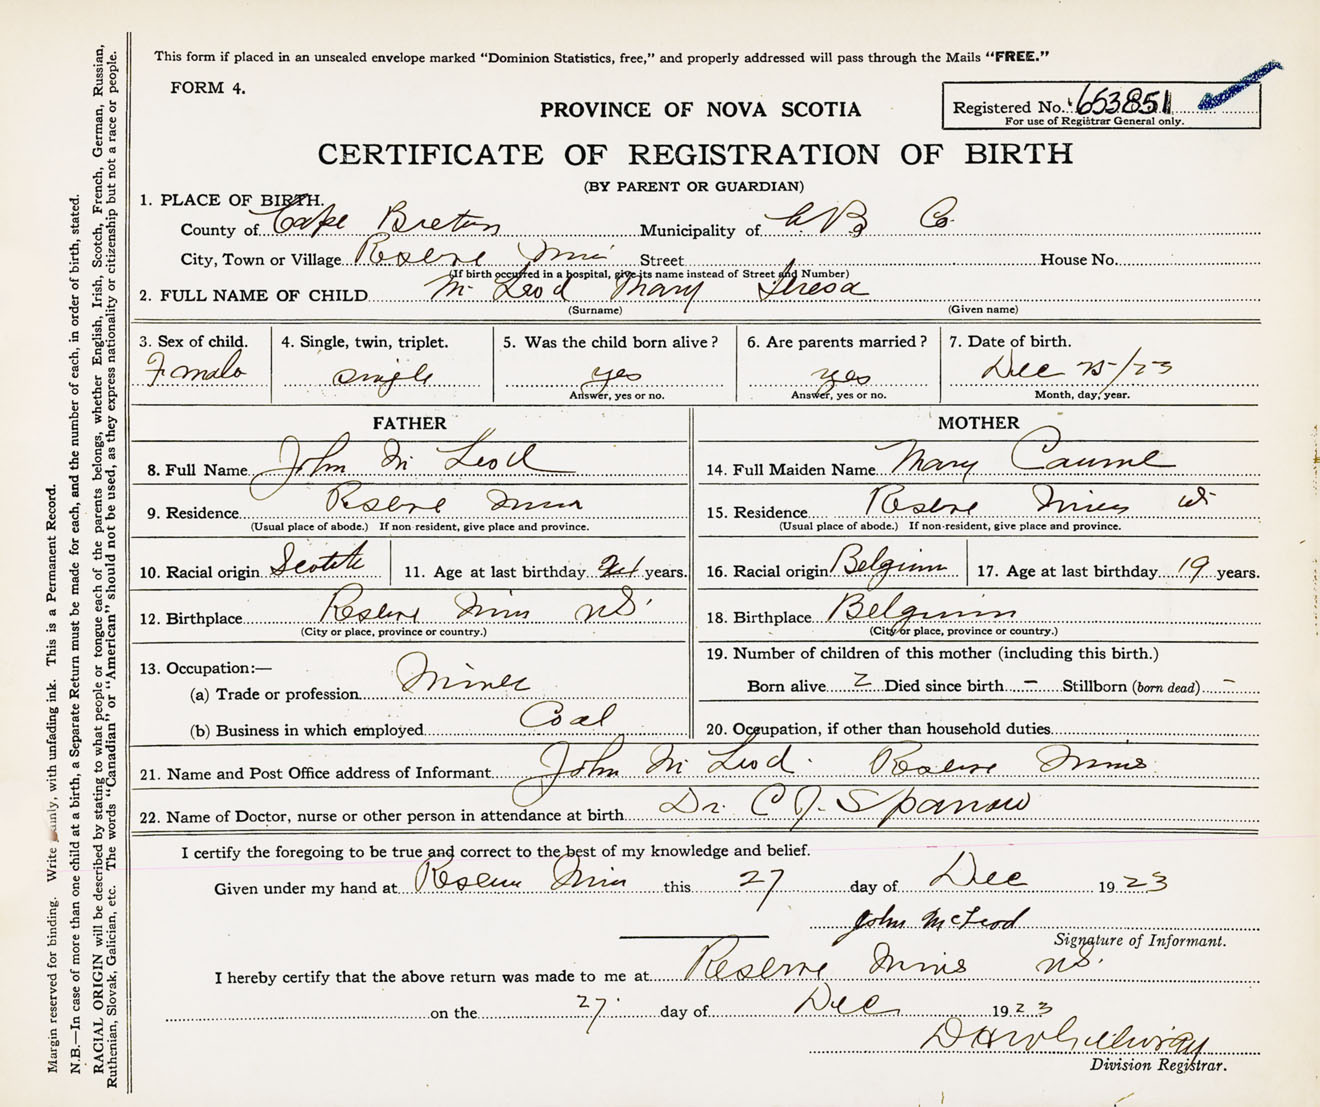 This form if placed in an unsealed envelope marked “Dominion Statistics, free,” and properly addressed will pass through the Mails “FREE.”
FORM 4.
Registered No. 653851
For use of Registrar General only.
PROVINCE OF NOVA SCOTIA
CERTIFICATE OF REGISTRATION OF BIRTH
(BY PARENT OR GUARDIAN)
1. PLACE OF BIRTH.
County of Cape Breton Municipality of C B Co
City, Town or Village Reserve Mines Street House No.
(If birth occurred in a hospital, give its name instead of Street and Number)
2. FULL NAME OF CHILD McLeod Mary Teresa
(Surname) (Given name)
3. Sex of child. 4. Single, twin, triplet. 5. Was the child born alive? 6. Are parents married? 7. Date of birth.
Female single yes yes Dec 25/23
Answer, yes or no. Answer, yes or no. Month, day, year.
FATHER
8. Full Name John McLeod
9. Residence Reserve Mines
(Usual place of abode.) If non-resident, give place and province.
10. Racial origin Scotch 11. Age at last birthday years.
12. Birthplace Reserve Mines NS.
(City or place, province or country.)
13. Occupation:—
(a) Trade or profession Miner
(b) Business in which employed Coal
MOTHER
14. Full Maiden Name Mary
15. Residence Reserve Mines
(Usual place of abode.) If non-resident, give place and province.
16. Racial origin Belgium 17. Age at last birthday 19 years.
18. Birthplace Belgium
(City or place, province or country.)
19. Number of children of this mother (including this birth.)
Born alive 2 Died since birth – Stillborn (born dead) –
20. Occupation, if other than household duties
21. Name and Post Office address of Informant John McLeod. Reserve Mines
22. Name of Doctor, nurse or other person in attendance at birth Dr. C J. Sparrow
I certify the foregoing to be true and correct to the best of my knowledge and belief.
Given under my hand at Reserve Mines this 27 day of Dec 1923
John McLeod
Signature of Informant.
I hereby certify that the above return was made to me at Reserve Mines NS.
on the 27. day of Dec 1923
Division Registrar.
Margin reserved for binding. Write plainly, with unfading ink. This is a Permanent Record.
N.B.—In case of more than one child at a birth, a Separate Return must be made for each, and the number of each, in order of birth, stated.
RACIAL ORIGIN will be described by stating to what people or tongue each of the parents belongs, whether English, Irish, Scotch, French, German, Russian,
Ruthenian, Slovak, Galician, etc. The words “Canadian” or “American” should not be used, as they express nationality or citizenship but not a race or people.